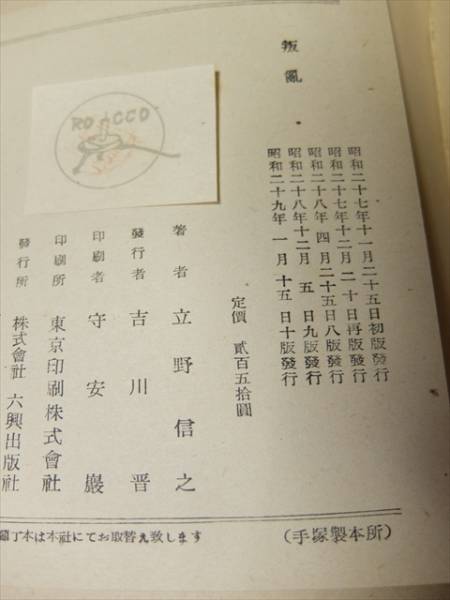 叛亂
昭和二十七年十一月二十五日初版發行
昭和二十七年十二月二十日再版發行
昭和二十八年四月二十五日八版發行
昭和二十八年十二月五日九版發行
昭和二十九年一月十五日十版發行
定價 貳百五拾圓
著者 立野信之
發行者 吉川晋
印刷者 守安巖
印刷所 東京印刷株式會社
發行所 株式會社 六興出版社
ROCCO
丁本は本社にてお取替え致します
(手塚製本所)